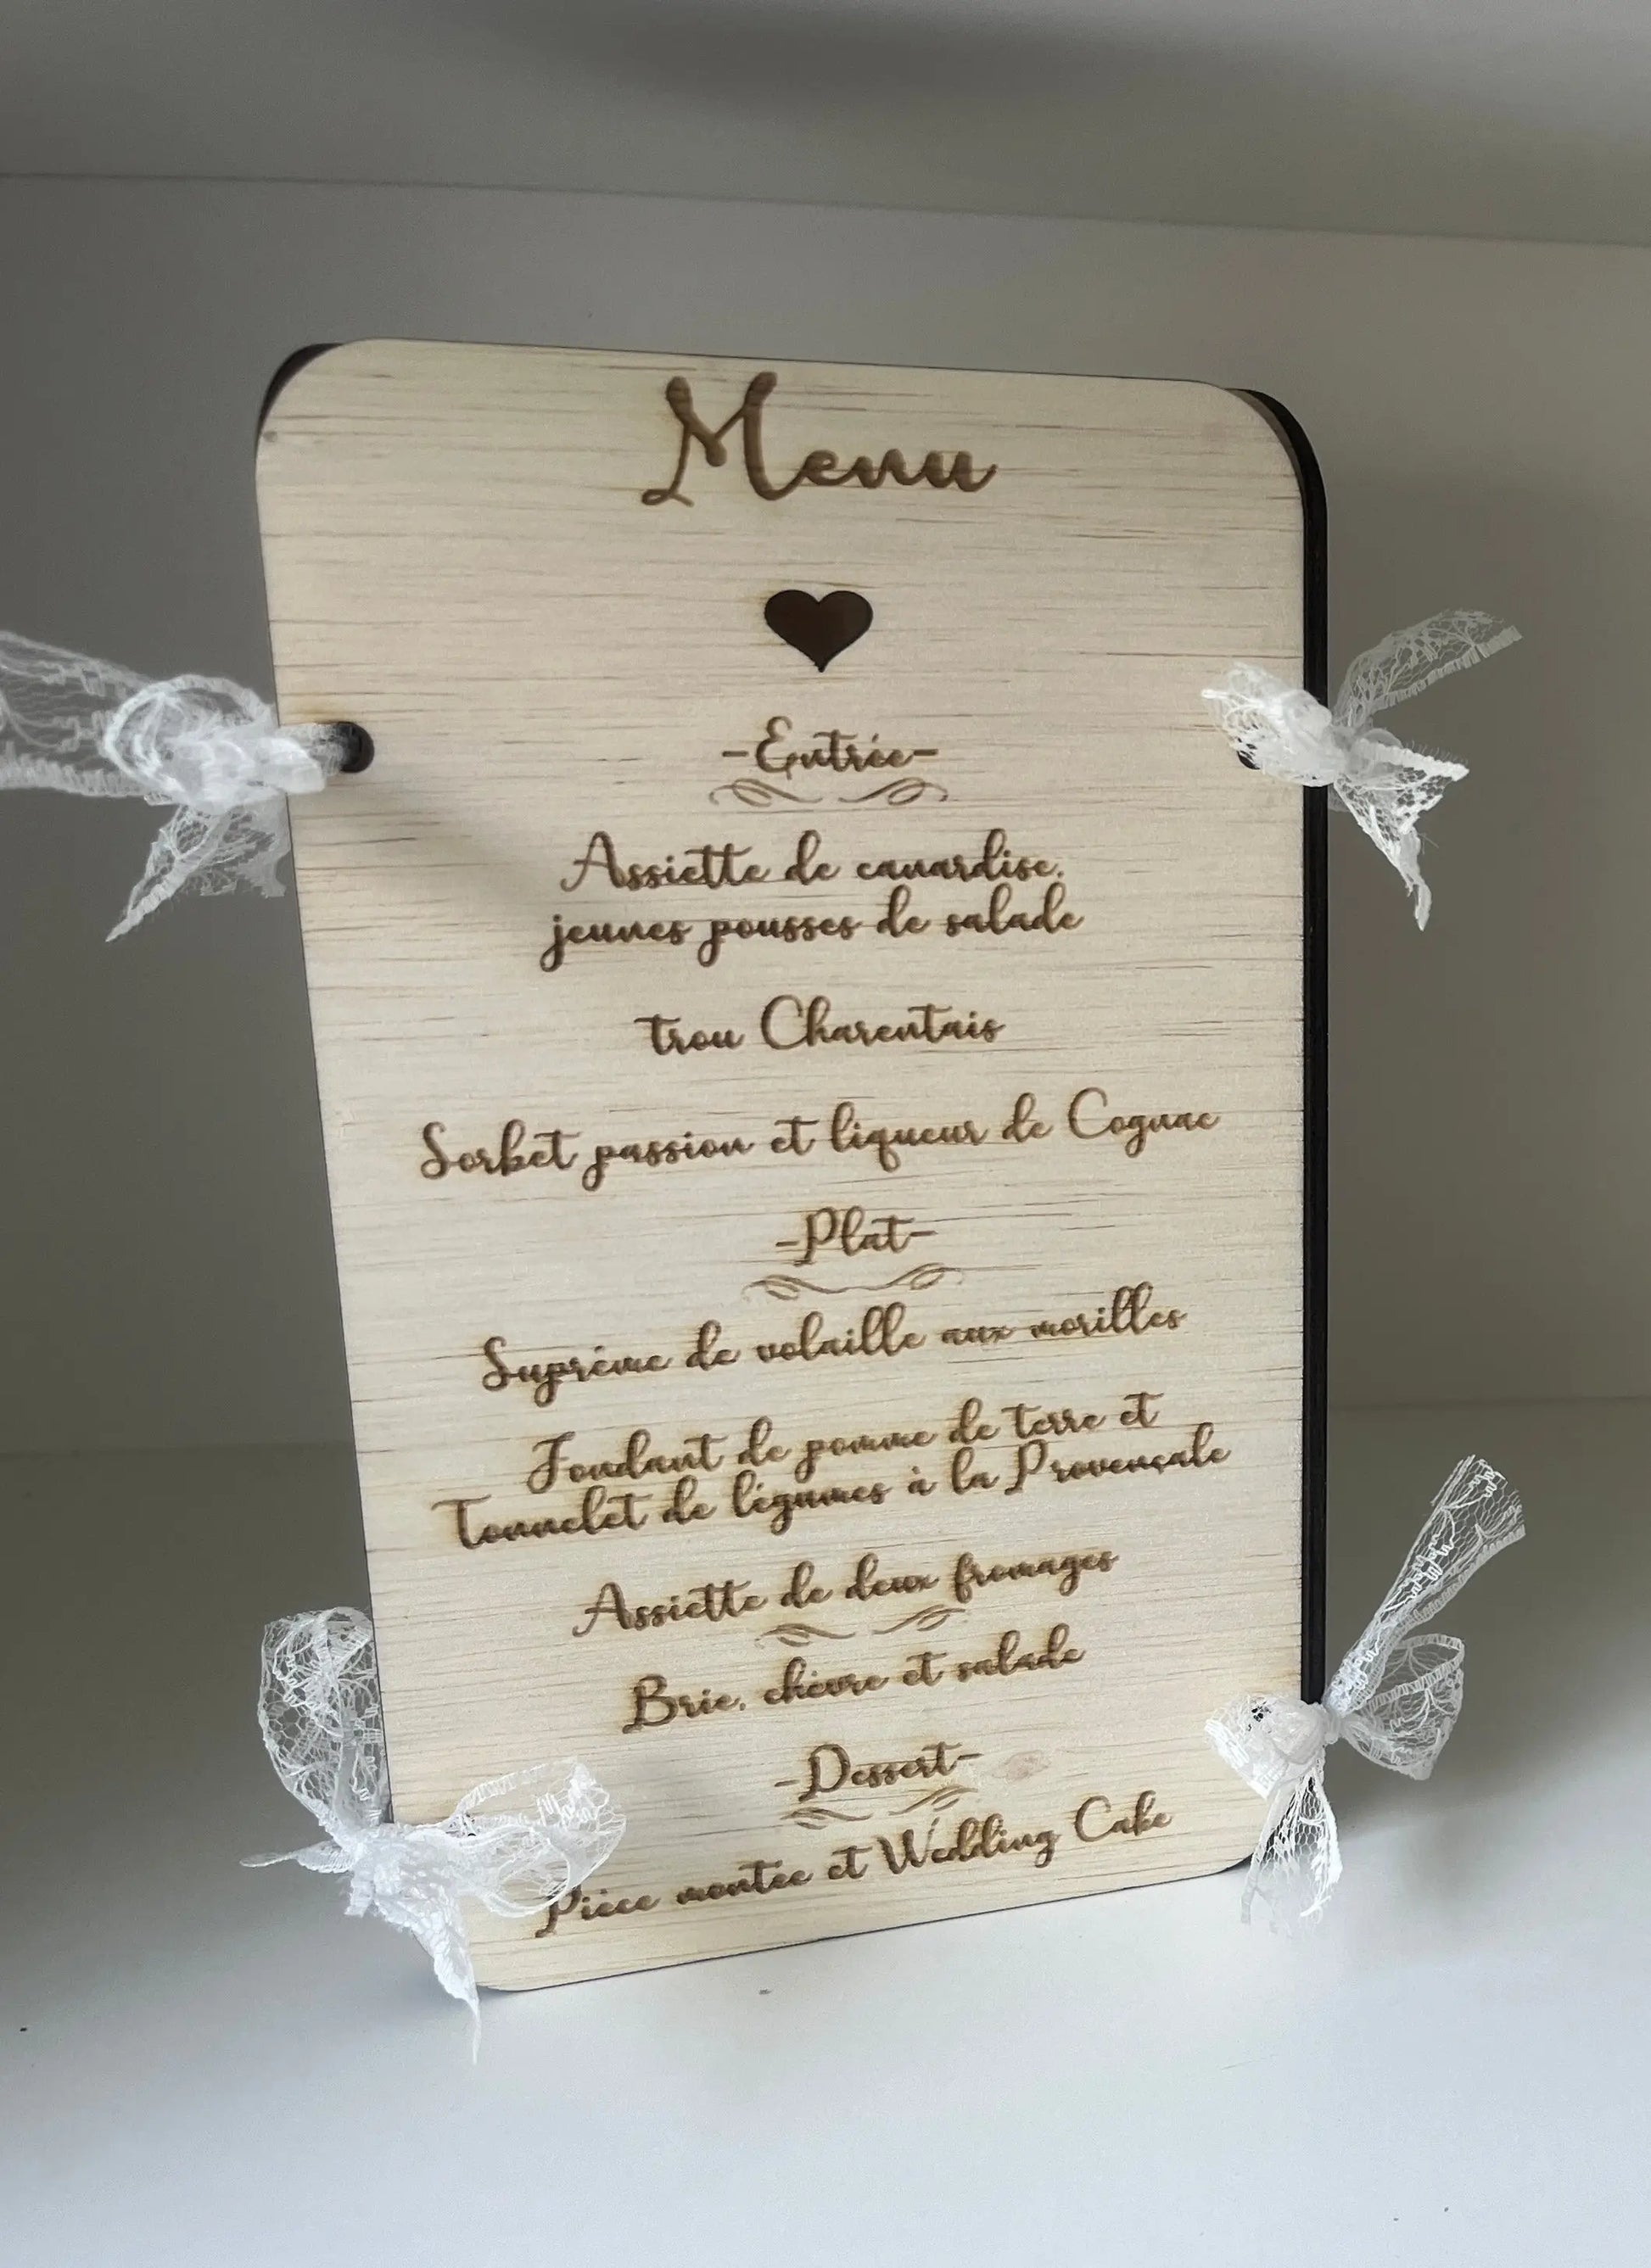 Menu
-Entrée-
Assiette de canardise,
jeunes pousses de salade
trou Charentais
Sorbet passion et liqueur de Cognac
-Plat-
Suprême de volaille aux morilles
Fondant de pomme de terre et
Tonnelet de légumes à la Provençale
Assiette de deux fromages
Brie, chèvre et salade
-Dessert-
Pièce montée et Wedding Cake